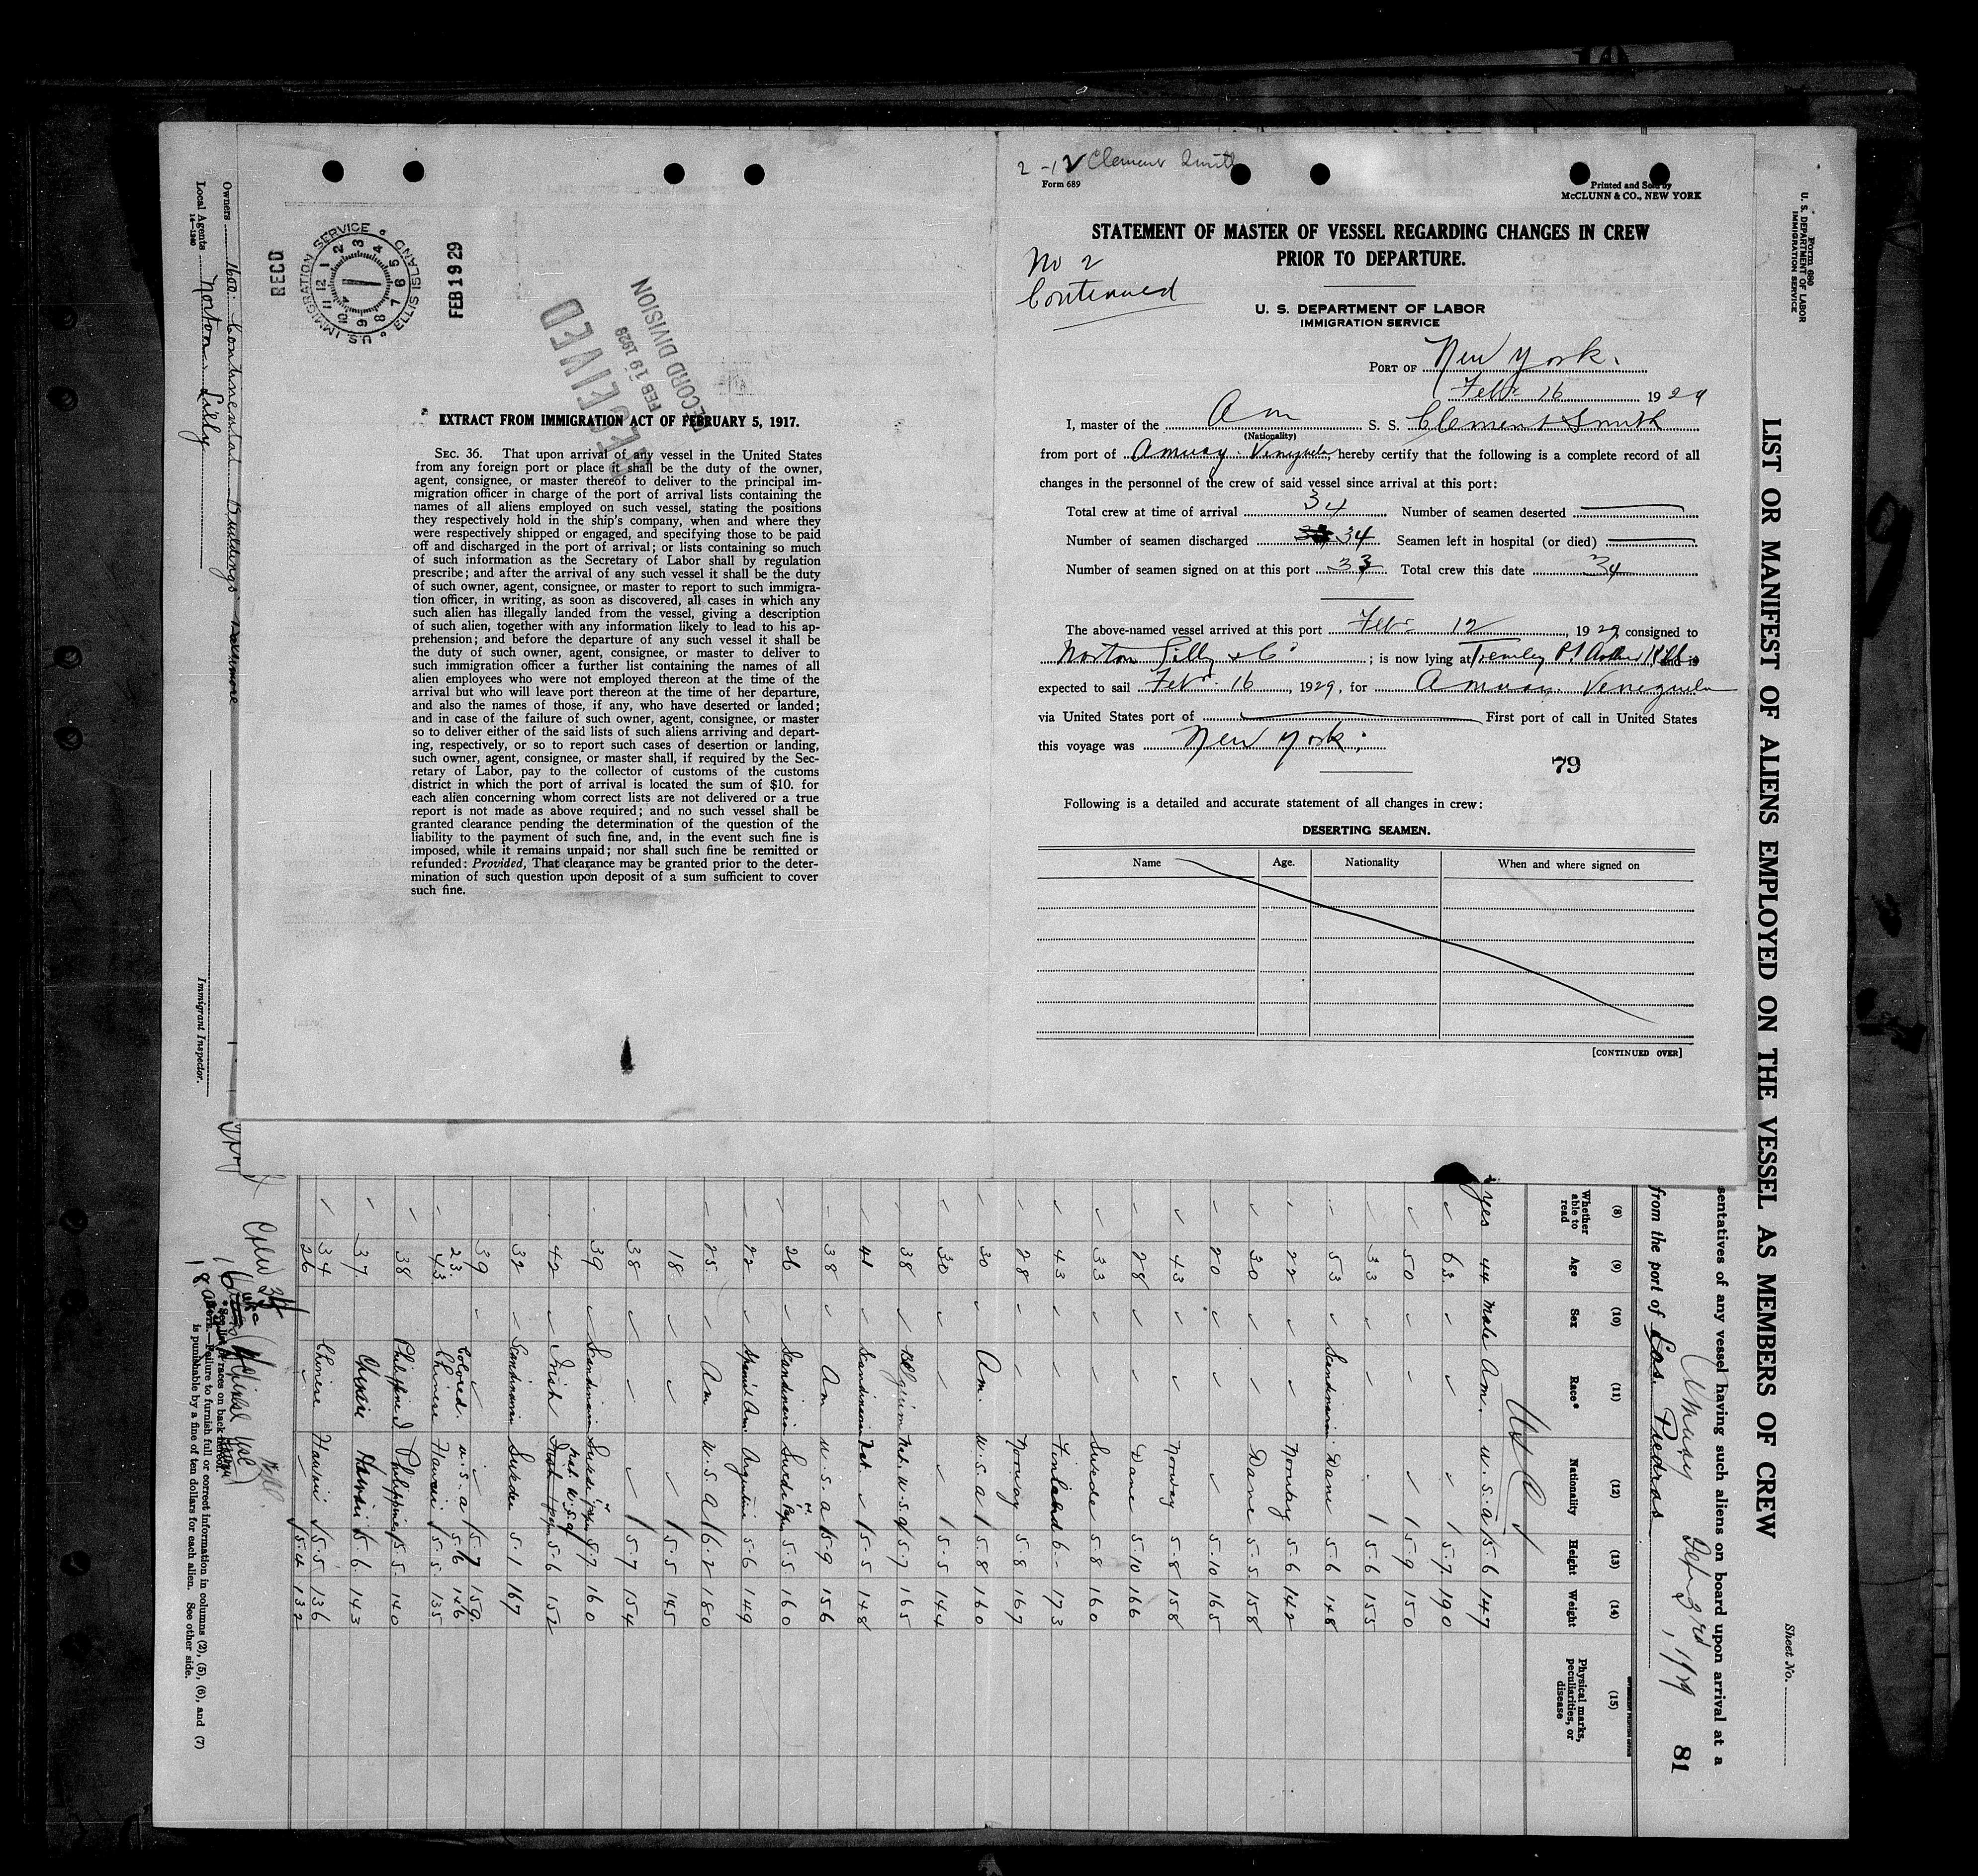 2-12 Clement Smith
Form 689
Printed and Sold by
McCLUNN & CO., NEW YORK
STATEMENT OF MASTER OF VESSEL REGARDING CHANGES IN CREW
PRIOR TO DEPARTURE.
No 2
Continued
U. S. DEPARTMENT OF LABOR
IMMIGRATION SERVICE
PORT OF New York.
Feb. 16 1929
I, master of the Am S. S. Clement Smith
(Nationality)
from port of Amuay Venezuela hereby certify that the following is a complete record of all
changes in the personnel of the crew of said vessel since arrival at this port:
Total crew at time of arrival 34 Number of seamen deserted
Number of seamen discharged 34 Seamen left in hospital (or died)
Number of seamen signed on at this port 33 Total crew this date 34
The above-named vessel arrived at this port Feb. 12, 1929, consigned to
Norton Lilly & Co ; is now lying at Tremley Pt and is
expected to sail Feb. 16, 1929, for Amuay. Venezuela
via United States port of First port of call in United States
this voyage was New York.
79
Following is a detailed and accurate statement of all changes in crew:
DESERTING SEAMEN.
Name Age. Nationality When and where signed on
[CONTINUED OVER]
RECD
U.S. IMMIGRATION SERVICE
ELLIS ISLAND
1 2 3 4 5 6 7 8 9 10 11 12
FEB 19 29
RECEIVED
FEB 19 1929
RECORD DIVISION
EXTRACT FROM IMMIGRATION ACT OF FEBRUARY 5, 1917.
SEC. 36. That upon arrival of any vessel in the United States
from any foreign port or place it shall be the duty of the owner,
agent, consignee, or master thereof to deliver to the principal im-
migration officer in charge of the port of arrival lists containing the
names of all aliens employed on such vessel, stating the positions
they respectively hold in the ship's company, when and where they
were respectively shipped or engaged, and specifying those to be paid
off and discharged in the port of arrival; or lists containing so much
of such information as the Secretary of Labor shall by regulation
prescribe; and after the arrival of any such vessel it shall be the duty
of such owner, agent, consignee, or master to report to such immigra-
tion officer, in writing, as soon as discovered, all cases in which any
such alien has illegally landed from the vessel, giving a description
of such alien, together with any information likely to lead to his ap-
prehension; and before the departure of any such vessel it shall be
the duty of such owner, agent, consignee, or master to deliver to
such immigration officer a further list containing the names of all
alien employees who were not employed thereon at the time of the
arrival but who will leave port thereon at the time of her departure,
and also the names of those, if any, who have deserted or landed;
and in case of the failure of such owner, agent, consignee, or master
so to deliver either of the said lists of such aliens arriving and depart-
ing, respectively, or so to report such cases of desertion or landing,
such owner, agent, consignee, or master shall, if required by the Sec-
retary of Labor, pay to the collector of customs of the customs
district in which the port of arrival is located the sum of $10. for
each alien concerning whom correct lists are not delivered or a true
report is not made as above required; and no such vessel shall be
granted clearance pending the determination of the question of the
liability to the payment of such fine, and, in the event such fine is
imposed, while it remains unpaid; nor shall such fine be remitted or
refunded: Provided, That clearance may be granted prior to the deter-
mination of such question upon deposit of a sum sufficient to cover
such fine.
Form 680
U. S. DEPARTMENT OF LABOR
IMMIGRATION SERVICE
Sheet No.
LIST OR MANIFEST OF ALIENS EMPLOYED ON THE VESSEL AS MEMBERS OF CREW
sentatives of any vessel having such aliens on board upon arrival at a
Amuay
from the port of Las Piedras , 1929
81
(8) (9) (10) (11) (12) (13) (14) (15)
Whether able to read Age Sex Race* Nationality Height Weight Physical marks, peculiarities, or disease
yes 44 male Am. U.S.a 5 6 147
63 5.7 190
50 5.9 150
33 5.6 155
53 Scandinavian Dane 5.6 148
22 Norway 5.6 142
30 Dane 5.5 158
20 5.10 165
43 Norway 5.8 158
28 Dane 5.10 166
33 Swede 5.8 160
43 Finland 6 - 173
28 Norway 5.8 167
30 Am. U.S.a 5.8 160
30 5.5 144
38 Belgium Nat. U.S.a 5.7 165
41 Scandinavian Nat. 5.5 148
38 Am U.S.a 5.9 156
26 Scandinavian Swede 5.5 160
22 Spanish Am. Argentine 5.6 149
25 Am U.S.a 6.2 180
18 5.5 145
38 5.7 154
39 Scandinavian Swede 5.7 160
42 Irish Nat. U.S.a 5.6 152
32 Scandinavian Sweden 5.1 167
39 5.7 159
23 Colored. U.S.a 5.6 126
43 Chinese Hawaii 5.5 135
38 Philippine Philippines 5.5 140
37 Chinese Hawaii 5.6 143
34 Chinese Hawaii 5.5 136
26 5.4 132
Crew 34
*See list of races on back hereof.
NOTE.—Failure to furnish full or correct information in columns (2), (5), (6), and (7)
is punishable by a fine of ten dollars for each alien. See other side.
Owners 1600 Continental Buildings Baltimore
Local Agents Norton Lilly
14—1240
Immigrant Inspector.